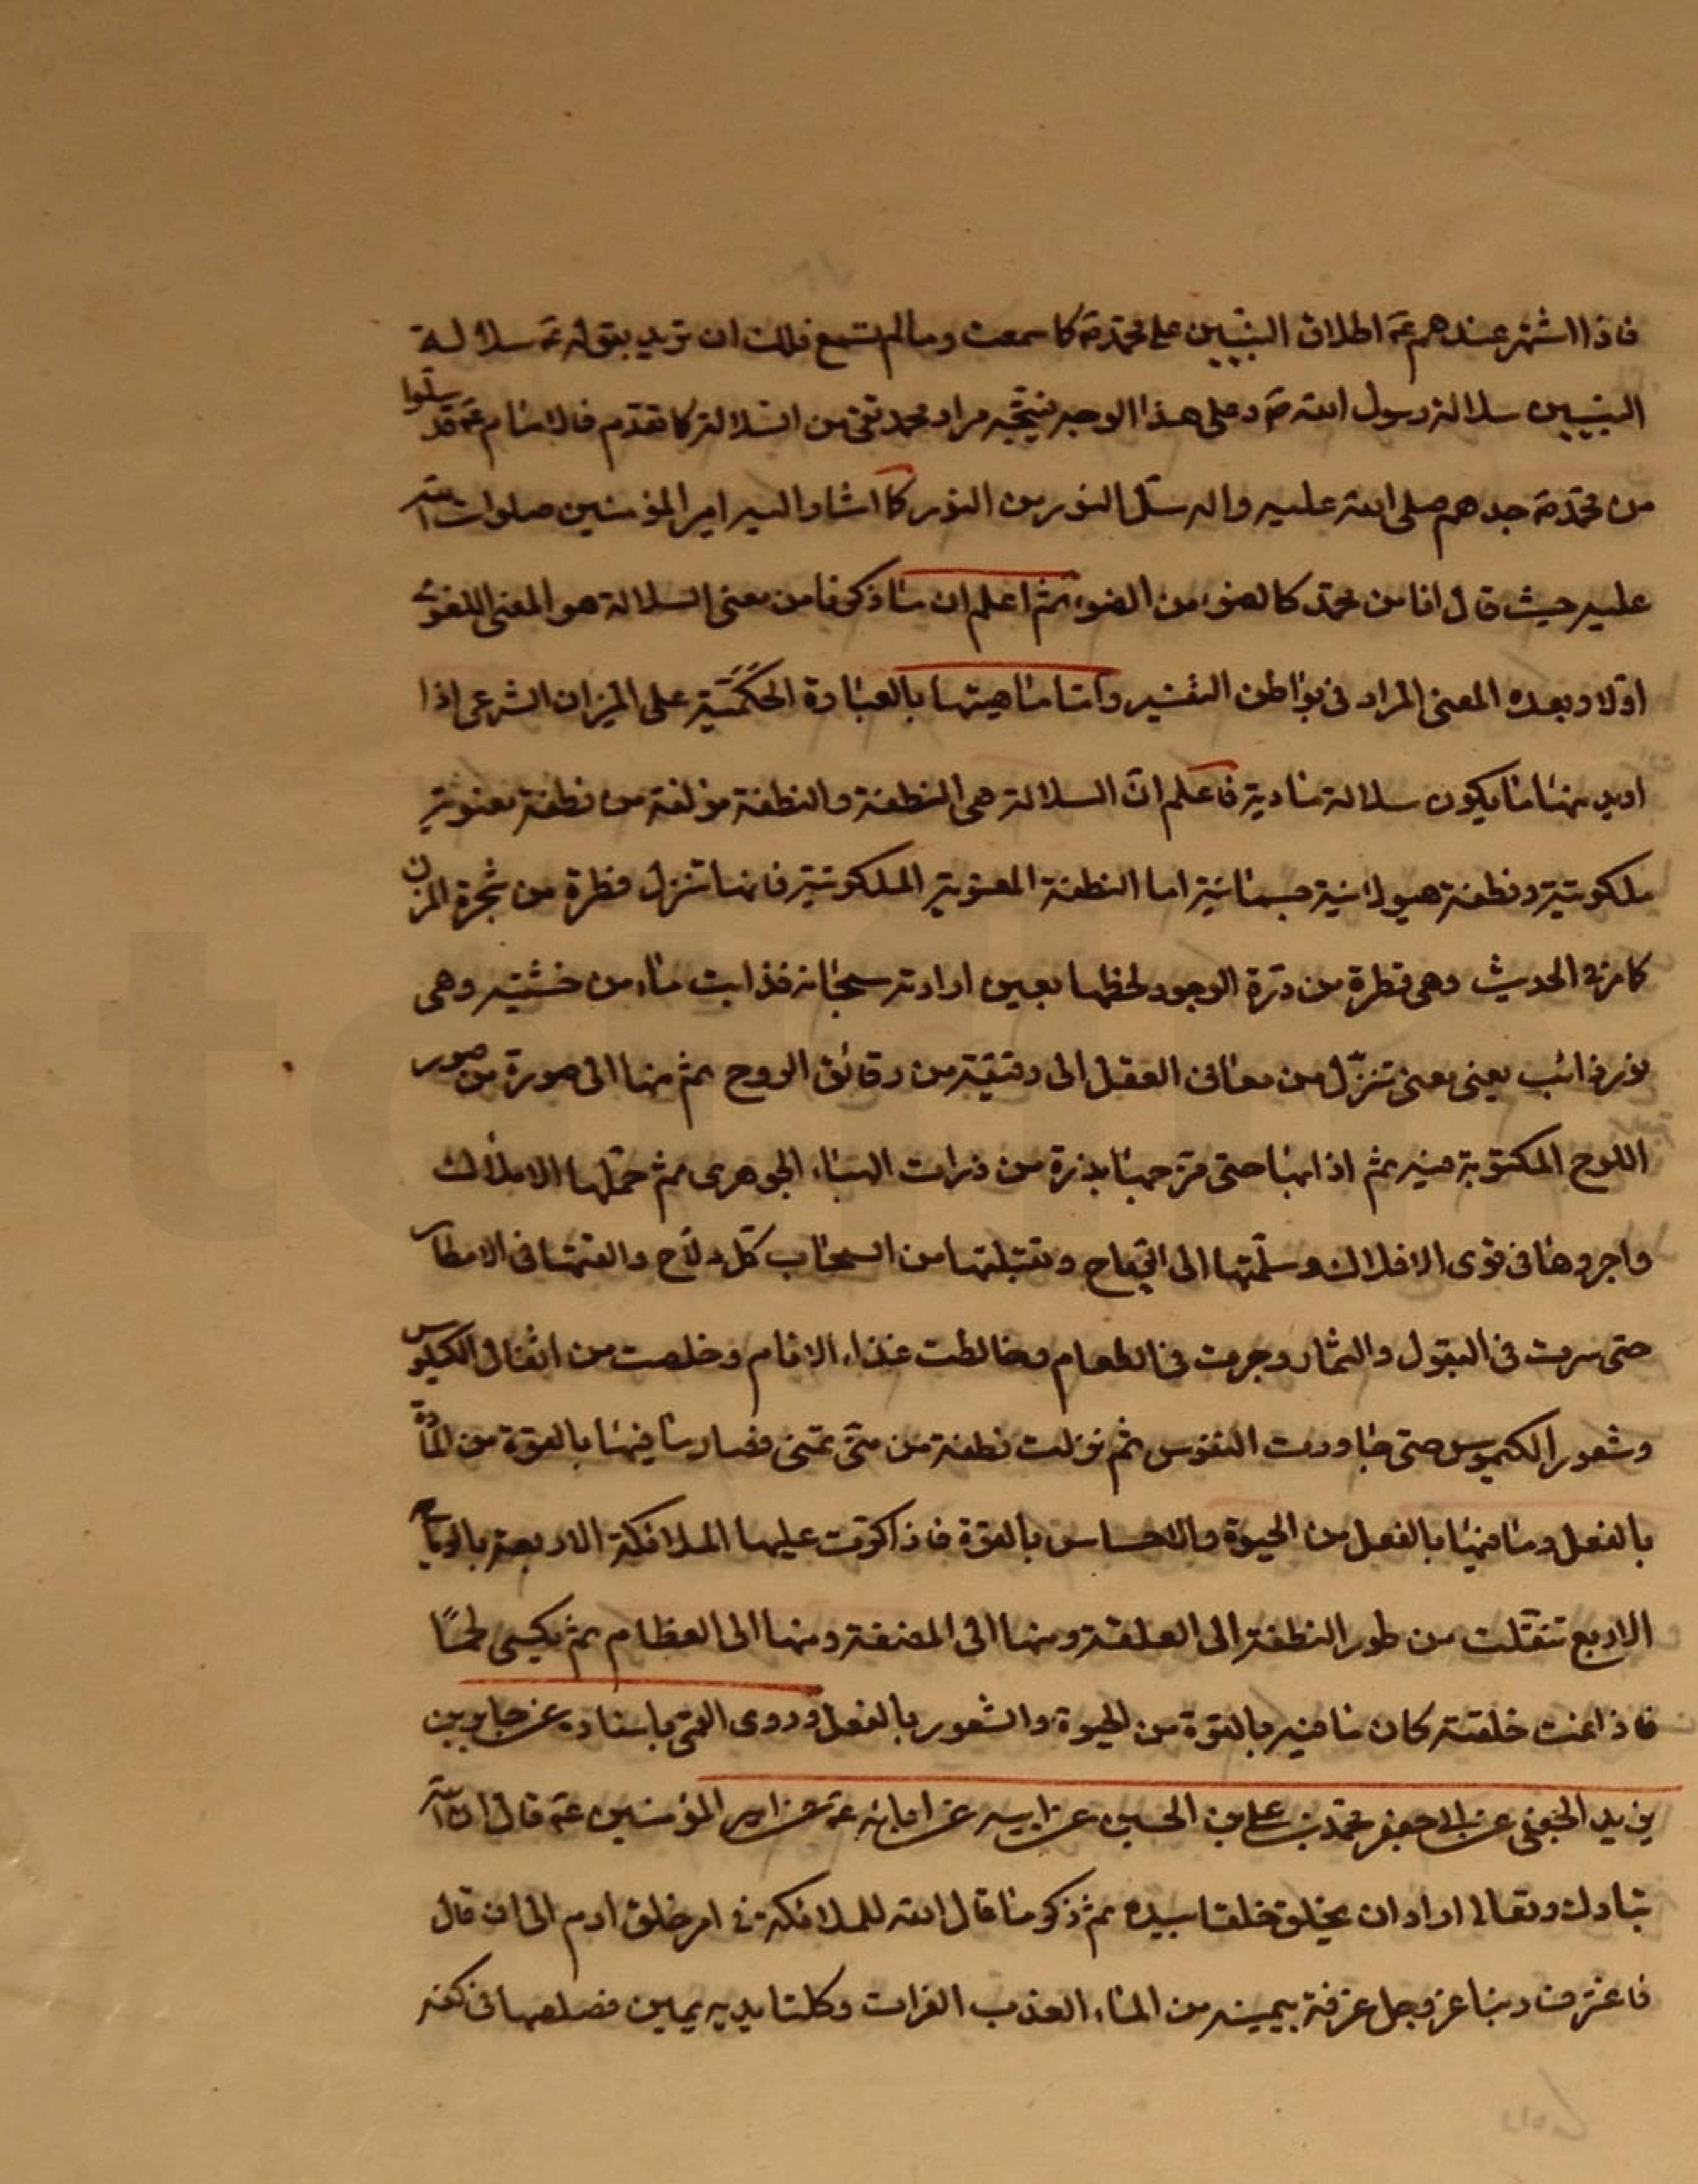 فاذا اشتهر عندهم عۤ اطلاق النبيين على محمد صۤ كما سمعت وما لم تسمع فلك ان تريد بقوله عۤ سلالة
النبيين سلالة رسول الله صۤ وعلى هذا الوجه يتجه مراد محمد تقي من السلالة كما تقدم فالامام عۤ قد سلّوا
من محمد صۤ جدهم صلى الله عليه واله سلّ النور من النور كما اشار اليه امير المؤمنين صلوات الله
عليه حيث قال انا من محمد كالضوء من الضوء ثم اعلم ان ما ذكرنا من معنى السلالة هو المعنى اللغوي
اولا وبعده المعنى المراد في بواطن التفسير واما ماهيتها بالعبارة الحكمية على الميزان الشرعى اذا
اريد منها ما يكون سلالة مادية فاعلم انّ السلالة هى النطفة والنطفة مؤلفة من نطفة معنوية
ملكوتية ونطفة هيولانية جسمانية اما النطفة المعنوية الملكوتية فانها تنزل قطرة من شجرة المزن
كما في الحديث وهى قطرة من درّة الوجود لحظها بعين ارادته سبحانه فذابت ماء من خشيته وهى
نور ذائب يعنى معنى تنزّل من معانى العقل الى رقيقة من رقائق الروح ثم منها الى صورة من صور
اللوح المكتوبة فيه ثم اذابها حتى مزجها بذرة من ذرات الهباء الجوهرى ثم حملها الاملاك
واجروها فى قوى الافلاك وسلّمتها الى الرياح وتقبلتها من السحاب كل دلاح والقتها فى الامطار
حتى سرت فى البقول والثمار وجرت فى الطعام وخالطت غذاء الانام وخلصت من اثفال الكيلوس
وشعور الكيموس حتى جاورت النفوس ثم نزلت نطفة من منىّ تمنى فصار ما فيها بالقوة من المادة
بالفعل وما فيها بالفعل من الحيوة والاحساس بالقوة فاذا كرّت عليها الملائكة الاربعة بالرياح
الاربع تنقّلت من طور النطفة الى العلقة ومنها الى المضغة ومنها الى العظام ثم يكسى لحمًا
فاذا تمت خلقته كان ما فيه بالقوة من الحيوة والشعور بالفعل وروى القمى باسناده عن جابر بن
يزيد الجعفى عن ابى جعفر محمد بن على بن الحسين عن ابيه عن اباىه عۤ عن امير المؤمنين عۤ قال ان الله
تبارك وتعالى اراد ان يخلق خلقا بيده ثم ذكر ما قال الله للملائكة في امر خلق ادم الى ان قال
فاغترف ربنا عز وجل غرفة بيمينه من الماء العذب الفرات وكلتا يديه يمين فصلصها فى كفه